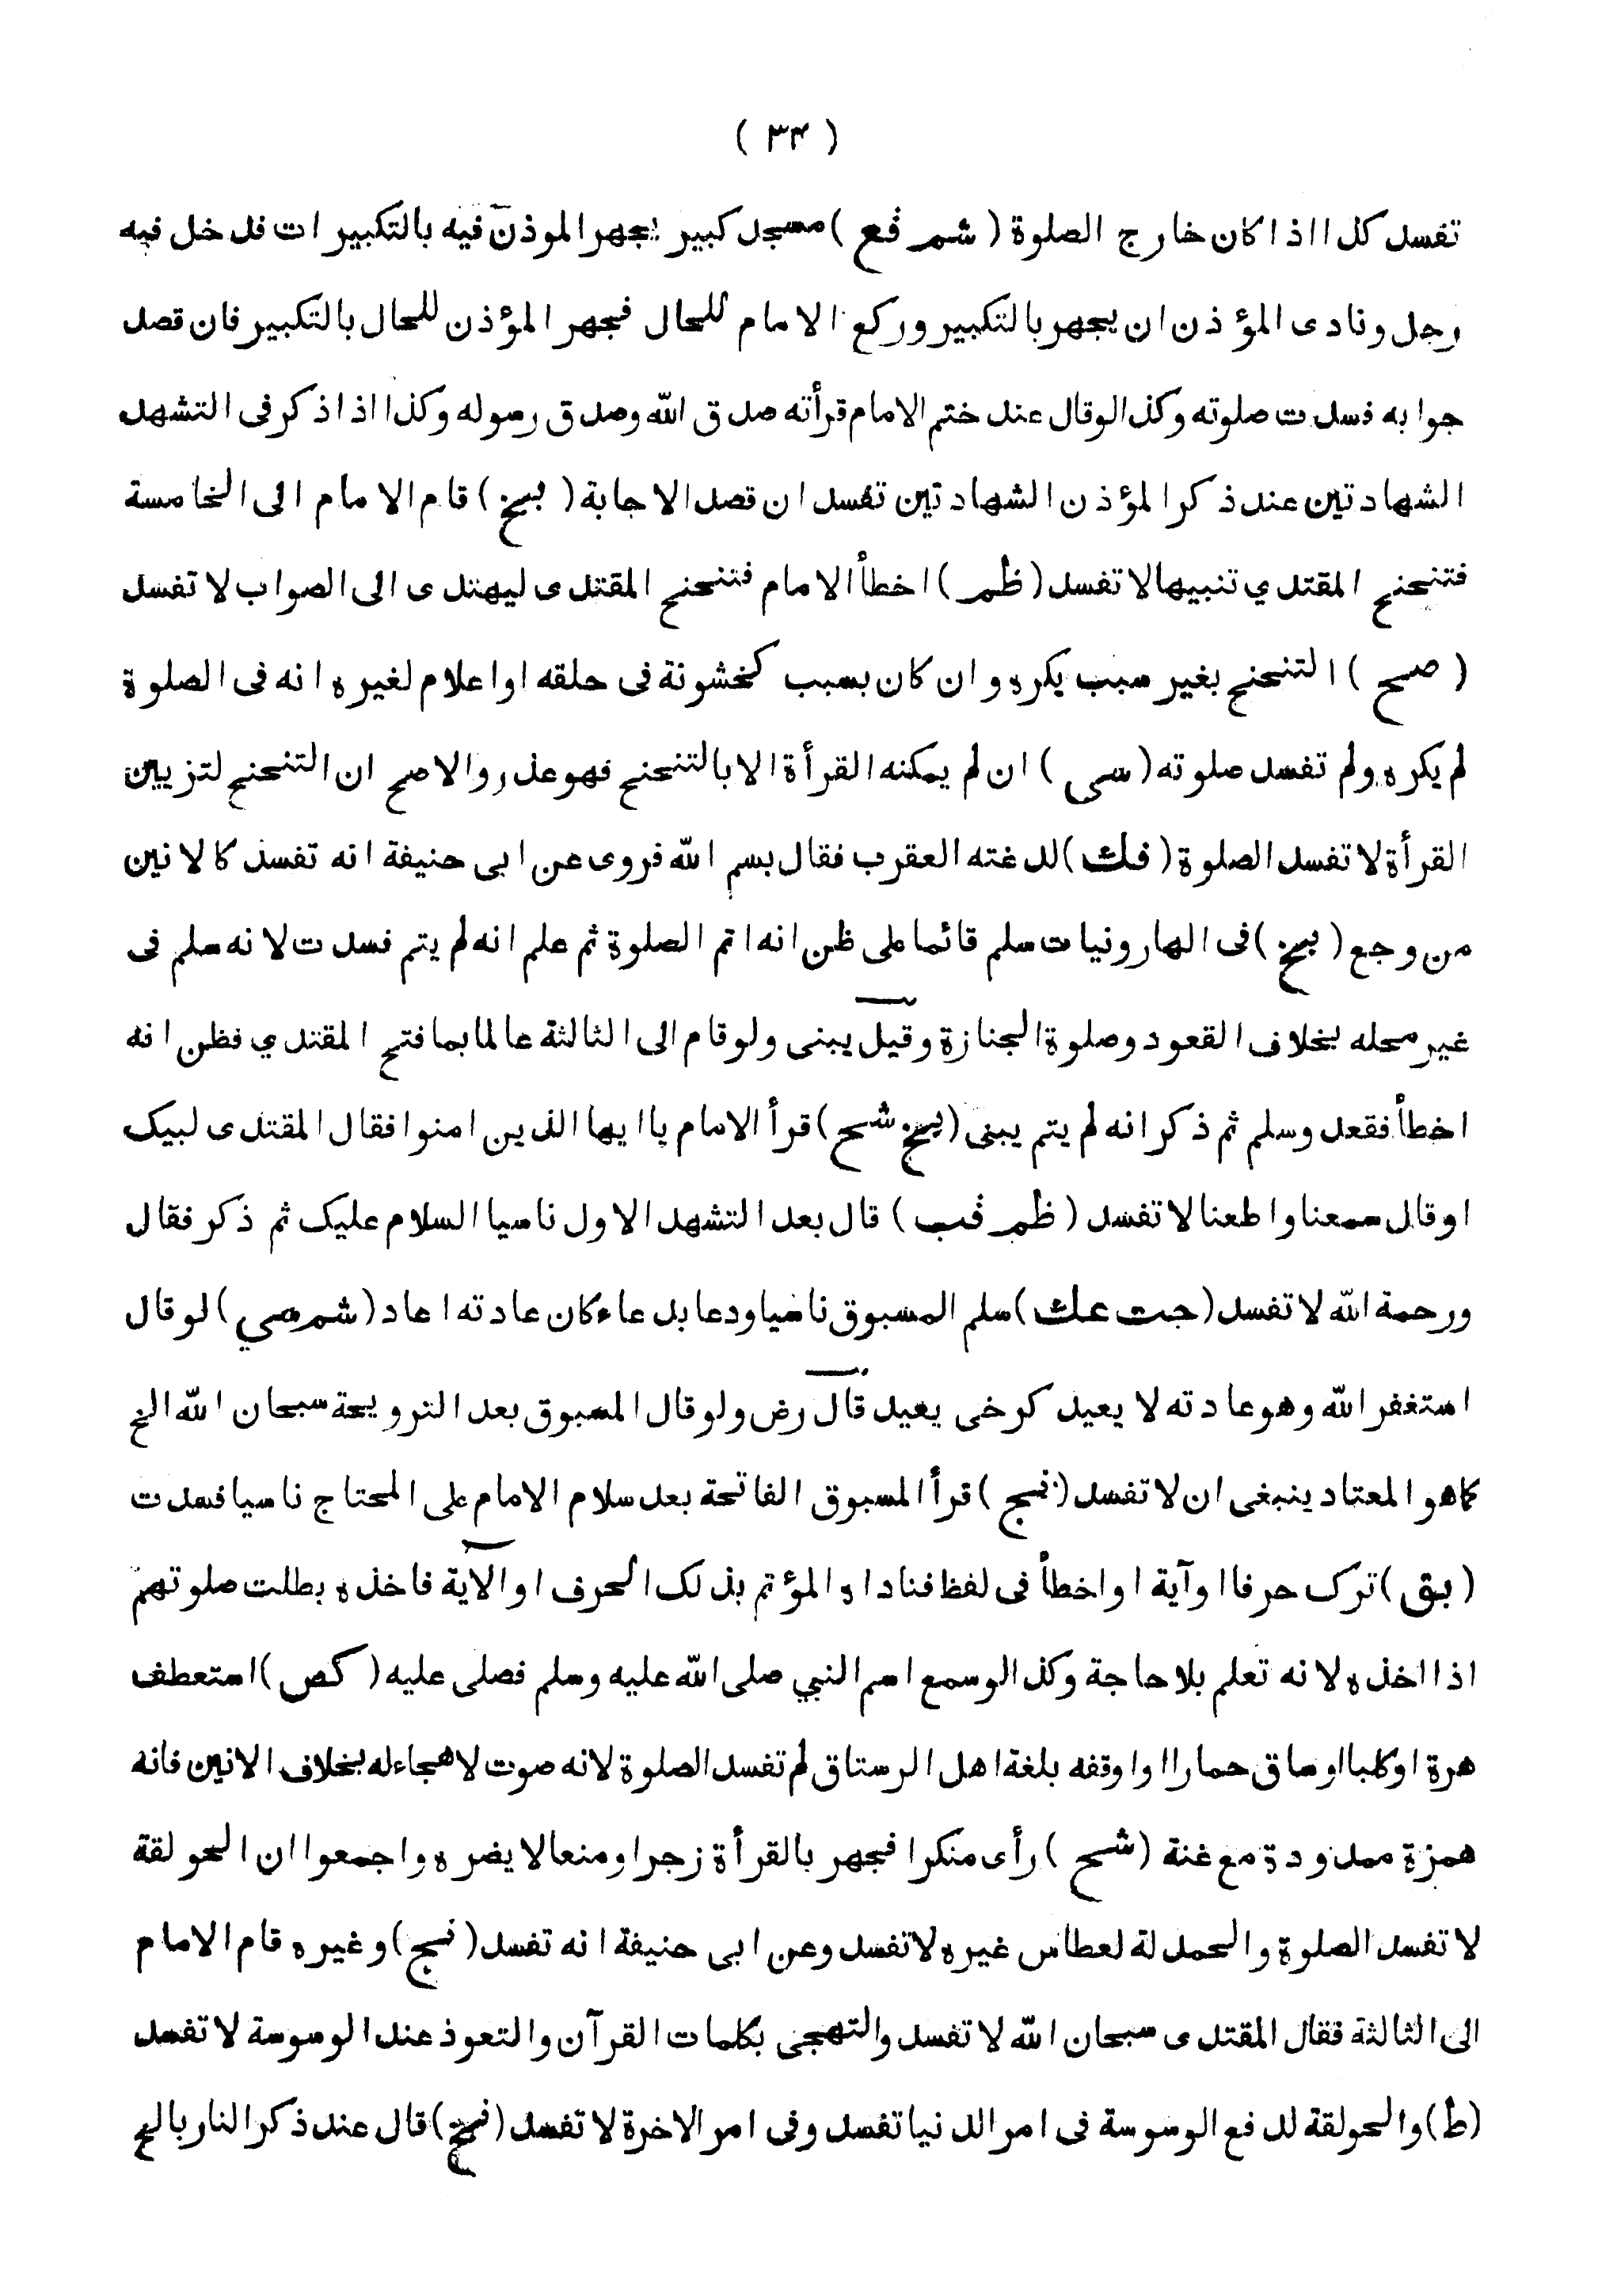 ( ٣٤ )
تفسد كذا اذا كان خارج الصلوة ( شم فع ) مسجد كبير يجهر الموذن فيه بالتكبيرات فدخل فيه
رجل ونادى المؤذن ان يجهر بالتكبير وركع الامام للحال فجهر المؤذن للحال بالتكبير فان قصد
جوابه فسدت صلوته وكذا لوقال عند ختم الامام قرأته صدق الله وصدق رسوله وكذا اذا ذكر فى التشهد
الشهادتين عند ذكر المؤذن الشهادتين تفسد ان قصد الاجابة ( بخ ) قام الامام الى الخامسة
فتنحنح المقتدي تنبيها لا تفسد ( ظم ) اخطأ الامام فتنحنح المقتدى ليهتدى الى الصواب لا تفسد
( صح ) التنحنح بغير سبب يكره وان كان بسبب كخشونة فى حلقه او اعلام لغيره انه فى الصلوة
لم يكره ولم تفسد صلوته ( سى ) ان لم يمكنه القرأة الا بالتنحنح فهو عذر والاصح ان التنحنح لتزيين
القرأة لا تفسد الصلوة ( فك ) لدغته العقرب فقال بسم الله فروى عن ابى حنيفة انه تفسد كالانين
من وجع ( بخ ) فى الهارونيات سلم قائما على ظن انه اتم الصلوة ثم علم انه لم يتم فسدت لانه سلم فى
غير محله بخلاف القعود وصلوة الجنازة وقيل يبنى ولو قام الى الثالثة عالما بما فتح المقتدي فظن انه
اخطأ فقعد وسلم ثم ذكر انه لم يتم يبنى ( بخ شح ) قرأ الامام يا ايها الذين امنوا فقال المقتدى لبيك
او قال سمعنا واطعنا لا تفسد ( ظم قب ) قال بعد التشهد الاول ناسيا السلام عليك ثم ذكر فقال
ورحمة الله لا تفسد ( جت عك ) سلم المسبوق ناسيا ودعا بدعاء كان عادته اعاد ( شم صي ) لو قال
استغفر الله وهو عادته لا يعيد كرخى يعيد قال رض ولو قال المسبوق بعد الترويحة سبحان الله الخ
كما هو المعتاد ينبغى ان لا تفسد ( نج ) قرأ المسبوق الفاتحة بعد سلام الامام على المحتاج ناسيا فسدت
( بق ) ترك حرفا او آية او اخطأ فى لفظ فناداه المؤتم بذلك الحرف او الآية فاخذه بطلت صلوتهم
اذا اخذه لانه تعلم بلا حاجة وكذا لوسمع اسم النبي صلى الله عليه وسلم فصلى عليه ( كص ) استعطف
هرة او كلبا او ساق حمارا او اوقفه بلغة اهل الرستاق لم تفسد الصلوة لانه صوت لا هجاء له بخلاف الانين فانه
همزة ممدودة مع غنة ( شح ) رأى منكرا فجهر بالقرأة زجرا ومنعا لا يضره واجمعوا ان الحولقة
لا تفسد الصلوة والحمد لة لعطاس غيره لا تفسد وعن ابى حنيفة انه تفسد ( نج ) وغيره قام الامام
الى الثالثة فقال المقتدى سبحان الله لا تفسد والتهجى بكلمات القرآن والتعوذ عند الوسوسة لا تفسد
( ط ) والحولقة لدفع الوسوسة فى امر الدنيا تفسد وفى امر الاخرة لا تفسد ( فخ ) قال عند ذكر النار بالخ